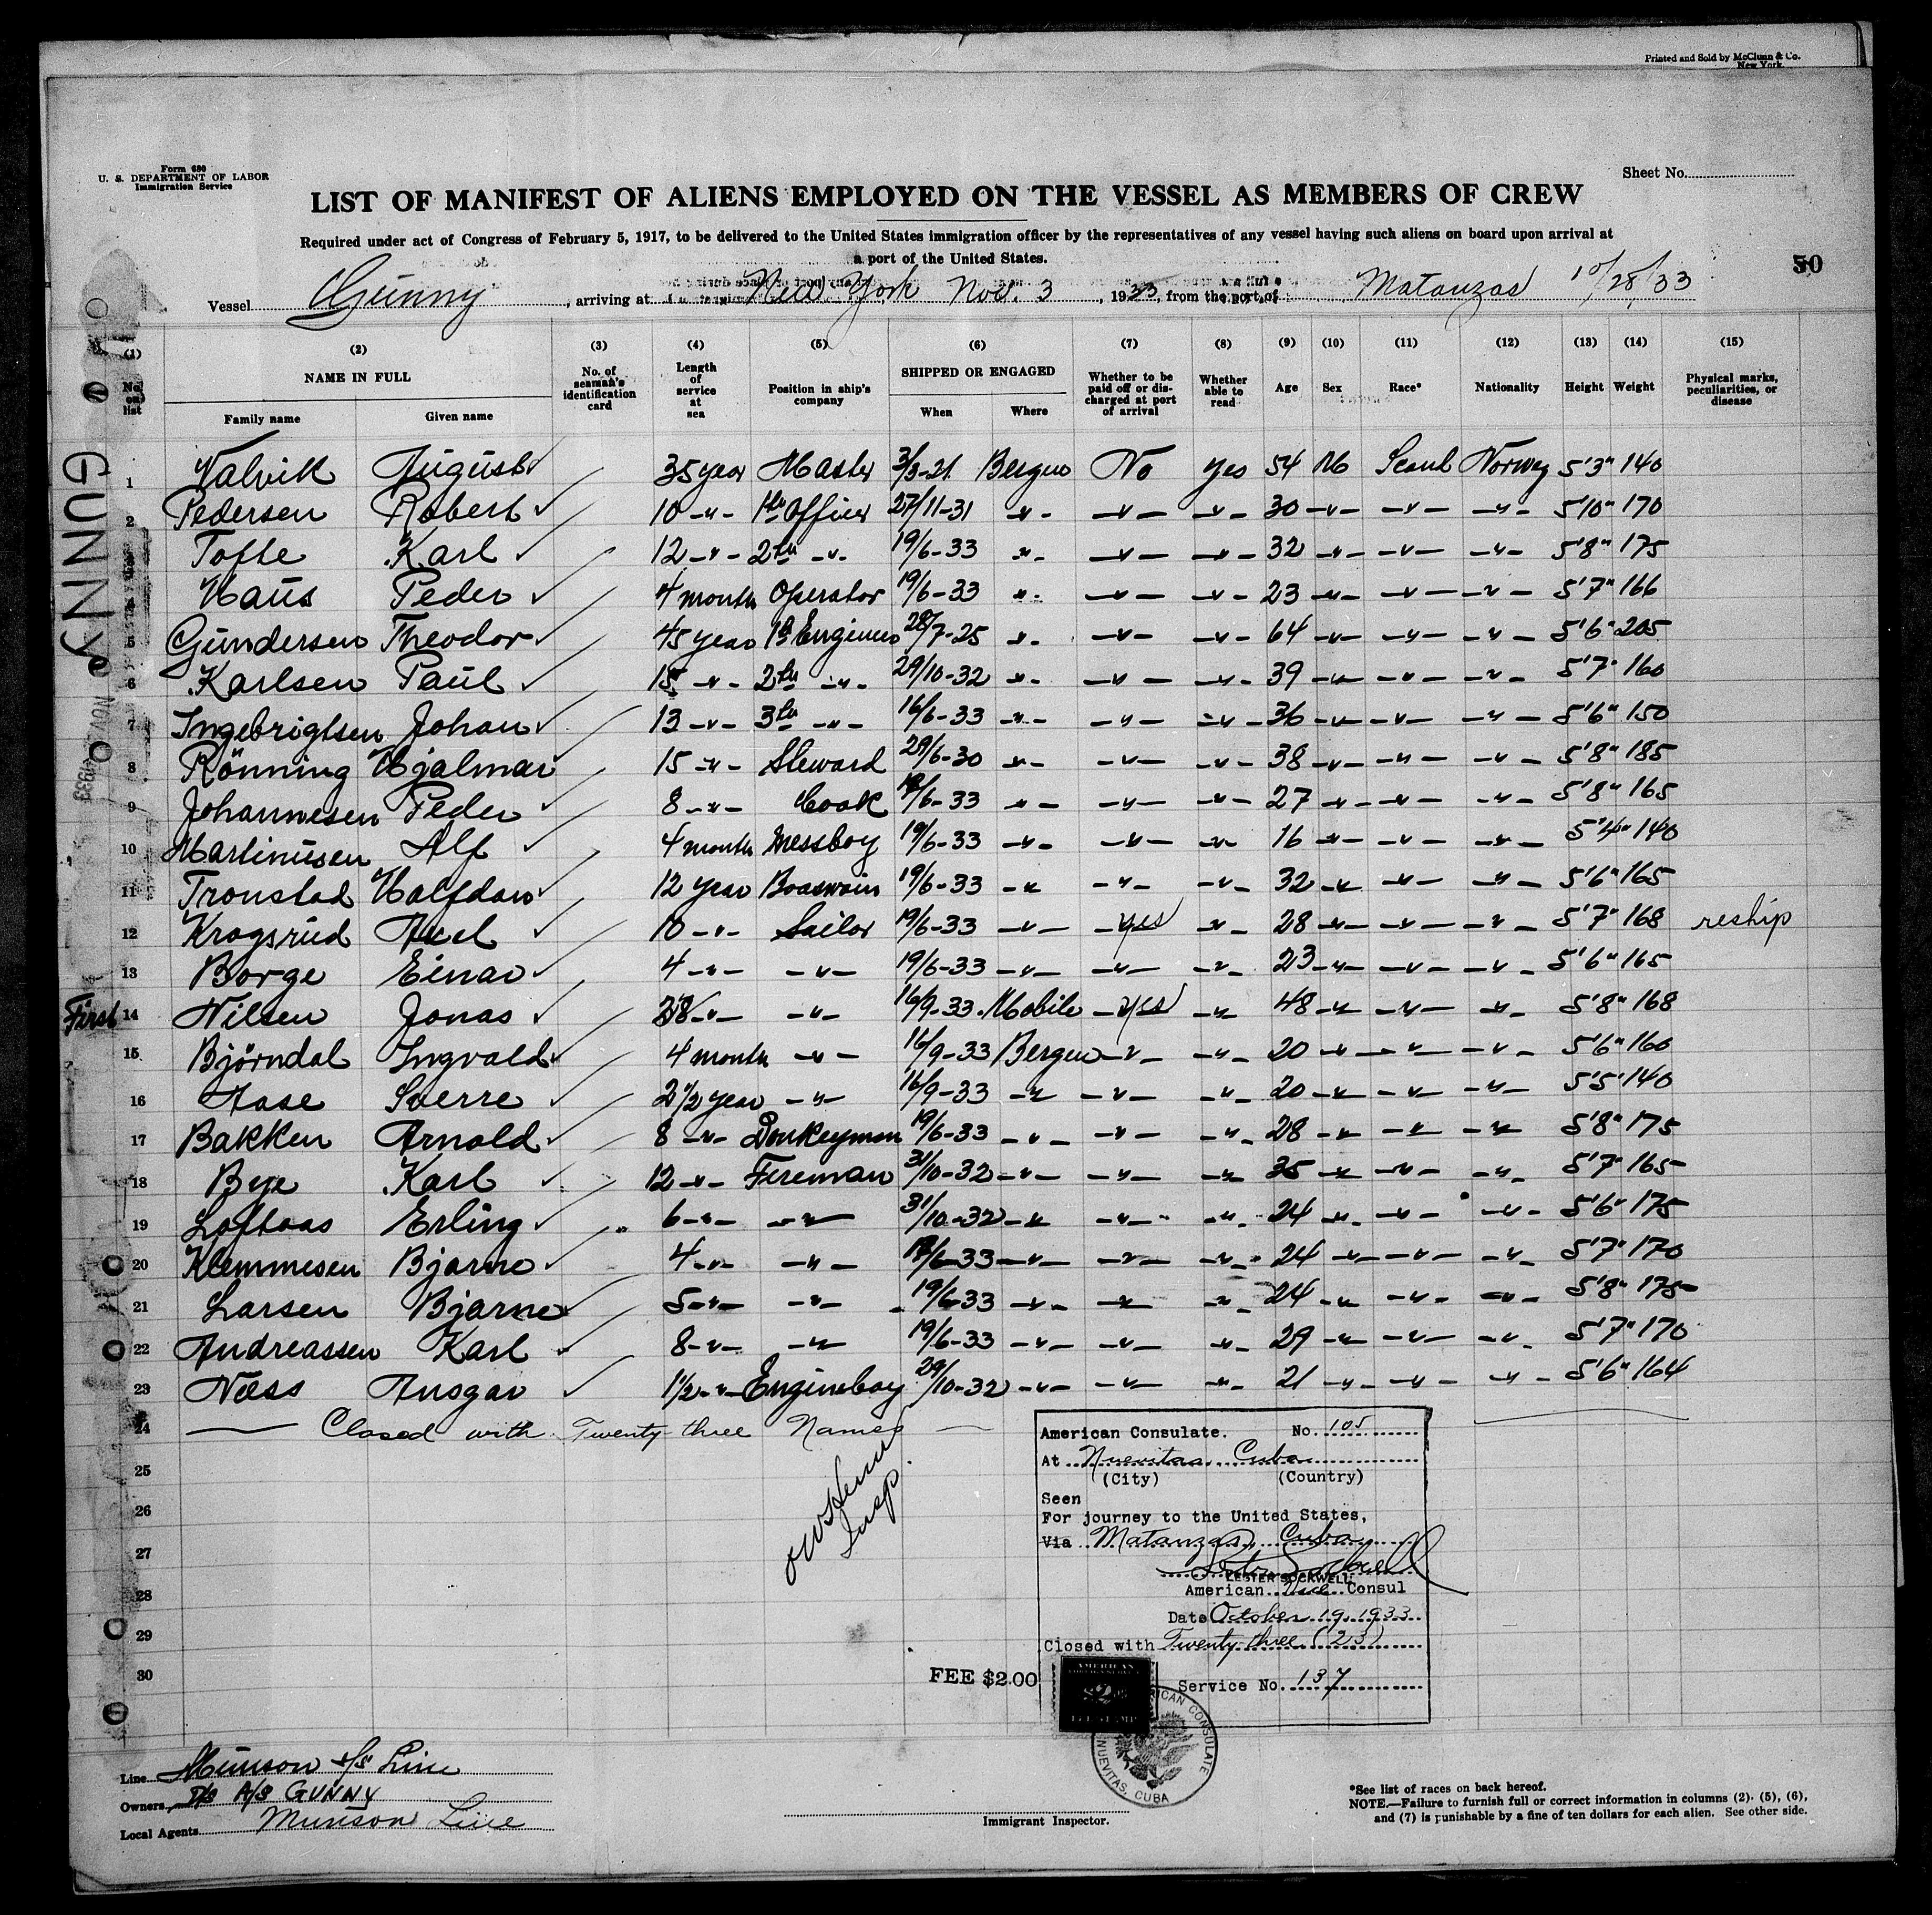 Printed and Sold by McClunn & Co.
New York.
Form 680
U. S. DEPARTMENT OF LABOR
Immigration Service
Sheet No.
LIST OF MANIFEST OF ALIENS EMPLOYED ON THE VESSEL AS MEMBERS OF CREW
Required under act of Congress of February 5, 1917, to be delivered to the United States immigration officer by the representatives of any vessel having such aliens on board upon arrival at
a port of the United States.
50
Vessel Gunny, arriving at New York Nov. 3, 1933, from the port of Matanzas 10/28/33
(1) (2) (3) (4) (5) (6) (7) (8) (9) (10) (11) (12) (13) (14) (15)
No. on list NAME IN FULL Family name Given name No. of seaman's identification card Length of service at sea Position in ship's company SHIPPED OR ENGAGED When Where Whether to be paid off or discharged at port of arrival Whether able to read Age Sex Race* Nationality Height Weight Physical marks, peculiarities, or disease
1 Valvik August 35 year Master 3/3-21 Bergen No Yes 54 M Scand Norweg 5'3" 140
2 Pedersen Robert 10 -"- 1ste Officer 27/11-31 -"- -"- -"- 30 -"- -"- -"- 5'10" 170
3 Tofte Karl 12 -"- 2th -"- 19/6-33 -"- -"- -"- 32 -"- -"- -"- 5'8" 175
4 Haus Peder 4 month Operator 19/6-33 -"- -"- -"- 23 -"- -"- -"- 5'7" 166
5 Gundersen Theodor 45 year 1st Engineer 28/7-25 -"- -"- -"- 64 -"- -"- -"- 5'6" 205
6 Karlsen Paul 15 -"- 2th -"- 29/10-32 -"- -"- -"- 39 -"- -"- -"- 5'7" 160
7 Ingebrigtsen Johan 13 -"- 3th -"- 16/6-33 -"- -"- -"- 36 -"- -"- -"- 5'6" 150
8 Rönning Hjalmar 15 -"- Steward 29/6-30 -"- -"- -"- 38 -"- -"- -"- 5'8" 185
9 Johannesen Peder 8 -"- Cook 19/6-33 -"- -"- -"- 27 -"- -"- -"- 5'8" 165
10 Martinusen Alf 4 month Messboy 19/6-33 -"- -"- -"- 16 -"- -"- -"- 5'4" 140
11 Tronstad Halfdan 12 year Boaswain 19/6-33 -"- -"- -"- 32 -"- -"- -"- 5'6" 165
12 Krogsrud Axel 10 -"- Sailor 19/6-33 -"- yes -"- 28 -"- -"- -"- 5'7" 168 reship
13 Borge Einar 4 -"- -"- 19/6-33 -"- -"- -"- 23 -"- -"- -"- 5'6" 165
First 14 Nilsen Jonas 28 -"- -"- 16/9-33 Mobile yes -"- 48 -"- -"- -"- 5'8" 168
15 Björndal Ingvald 4 month -"- 16/9-33 Bergen -"- -"- 20 -"- -"- -"- 5'6" 160
16 Aase Sverre 2 1/2 year -"- 16/9-33 -"- -"- -"- 20 -"- -"- -"- 5'5" 140
17 Bakken Arnold 8 -"- Donkeyman 19/6-33 -"- -"- -"- 28 -"- -"- -"- 5'8" 175
18 Bye Karl 12 -"- Fireman 31/10-32 -"- -"- -"- 35 -"- -"- -"- 5'7" 165
19 Loftaas Erling 6 -"- -"- 31/10-32 -"- -"- -"- 24 -"- -"- -"- 5'6" 175
20 Klemmesen Bjarne 4 -"- -"- 19/6-33 -"- -"- -"- 24 -"- -"- -"- 5'7" 170
21 Larsen Bjarne 5 -"- -"- 19/6-33 -"- -"- -"- 24 -"- -"- -"- 5'8" 175
22 Andreassen Karl 8 -"- -"- 19/6-33 -"- -"- -"- 29 -"- -"- -"- 5'7" 170
23 Næss Ansgar 1 1/2 -"- Engineboy 29/10-32 -"- -"- -"- 21 -"- -"- -"- 5'6" 164
24 Closed with Twenty three Names
25
26
27
28
29
30
Insp.
GUNNY
NOV 1933
American Consulate. No. 105
At Nuevitas Cuba
(City) (Country)
Seen
For journey to the United States,
Via Matanzas, Cuba
LESTER SOCKWELL
American Vice Consul
Date October 19 1933
Closed with Twenty three (23)
FEE $2.00
Service No. 137
AMERICAN CONSULATE
NUEVITAS, CUBA
Line Munson s/s Line
Owners D/S A/S GUNNY
Local Agents Munson Line
Immigrant Inspector.
*See list of races on back hereof.
NOTE.—Failure to furnish full or correct information in columns (2), (5), (6),
and (7) is punishable by a fine of ten dollars for each alien. See other side.